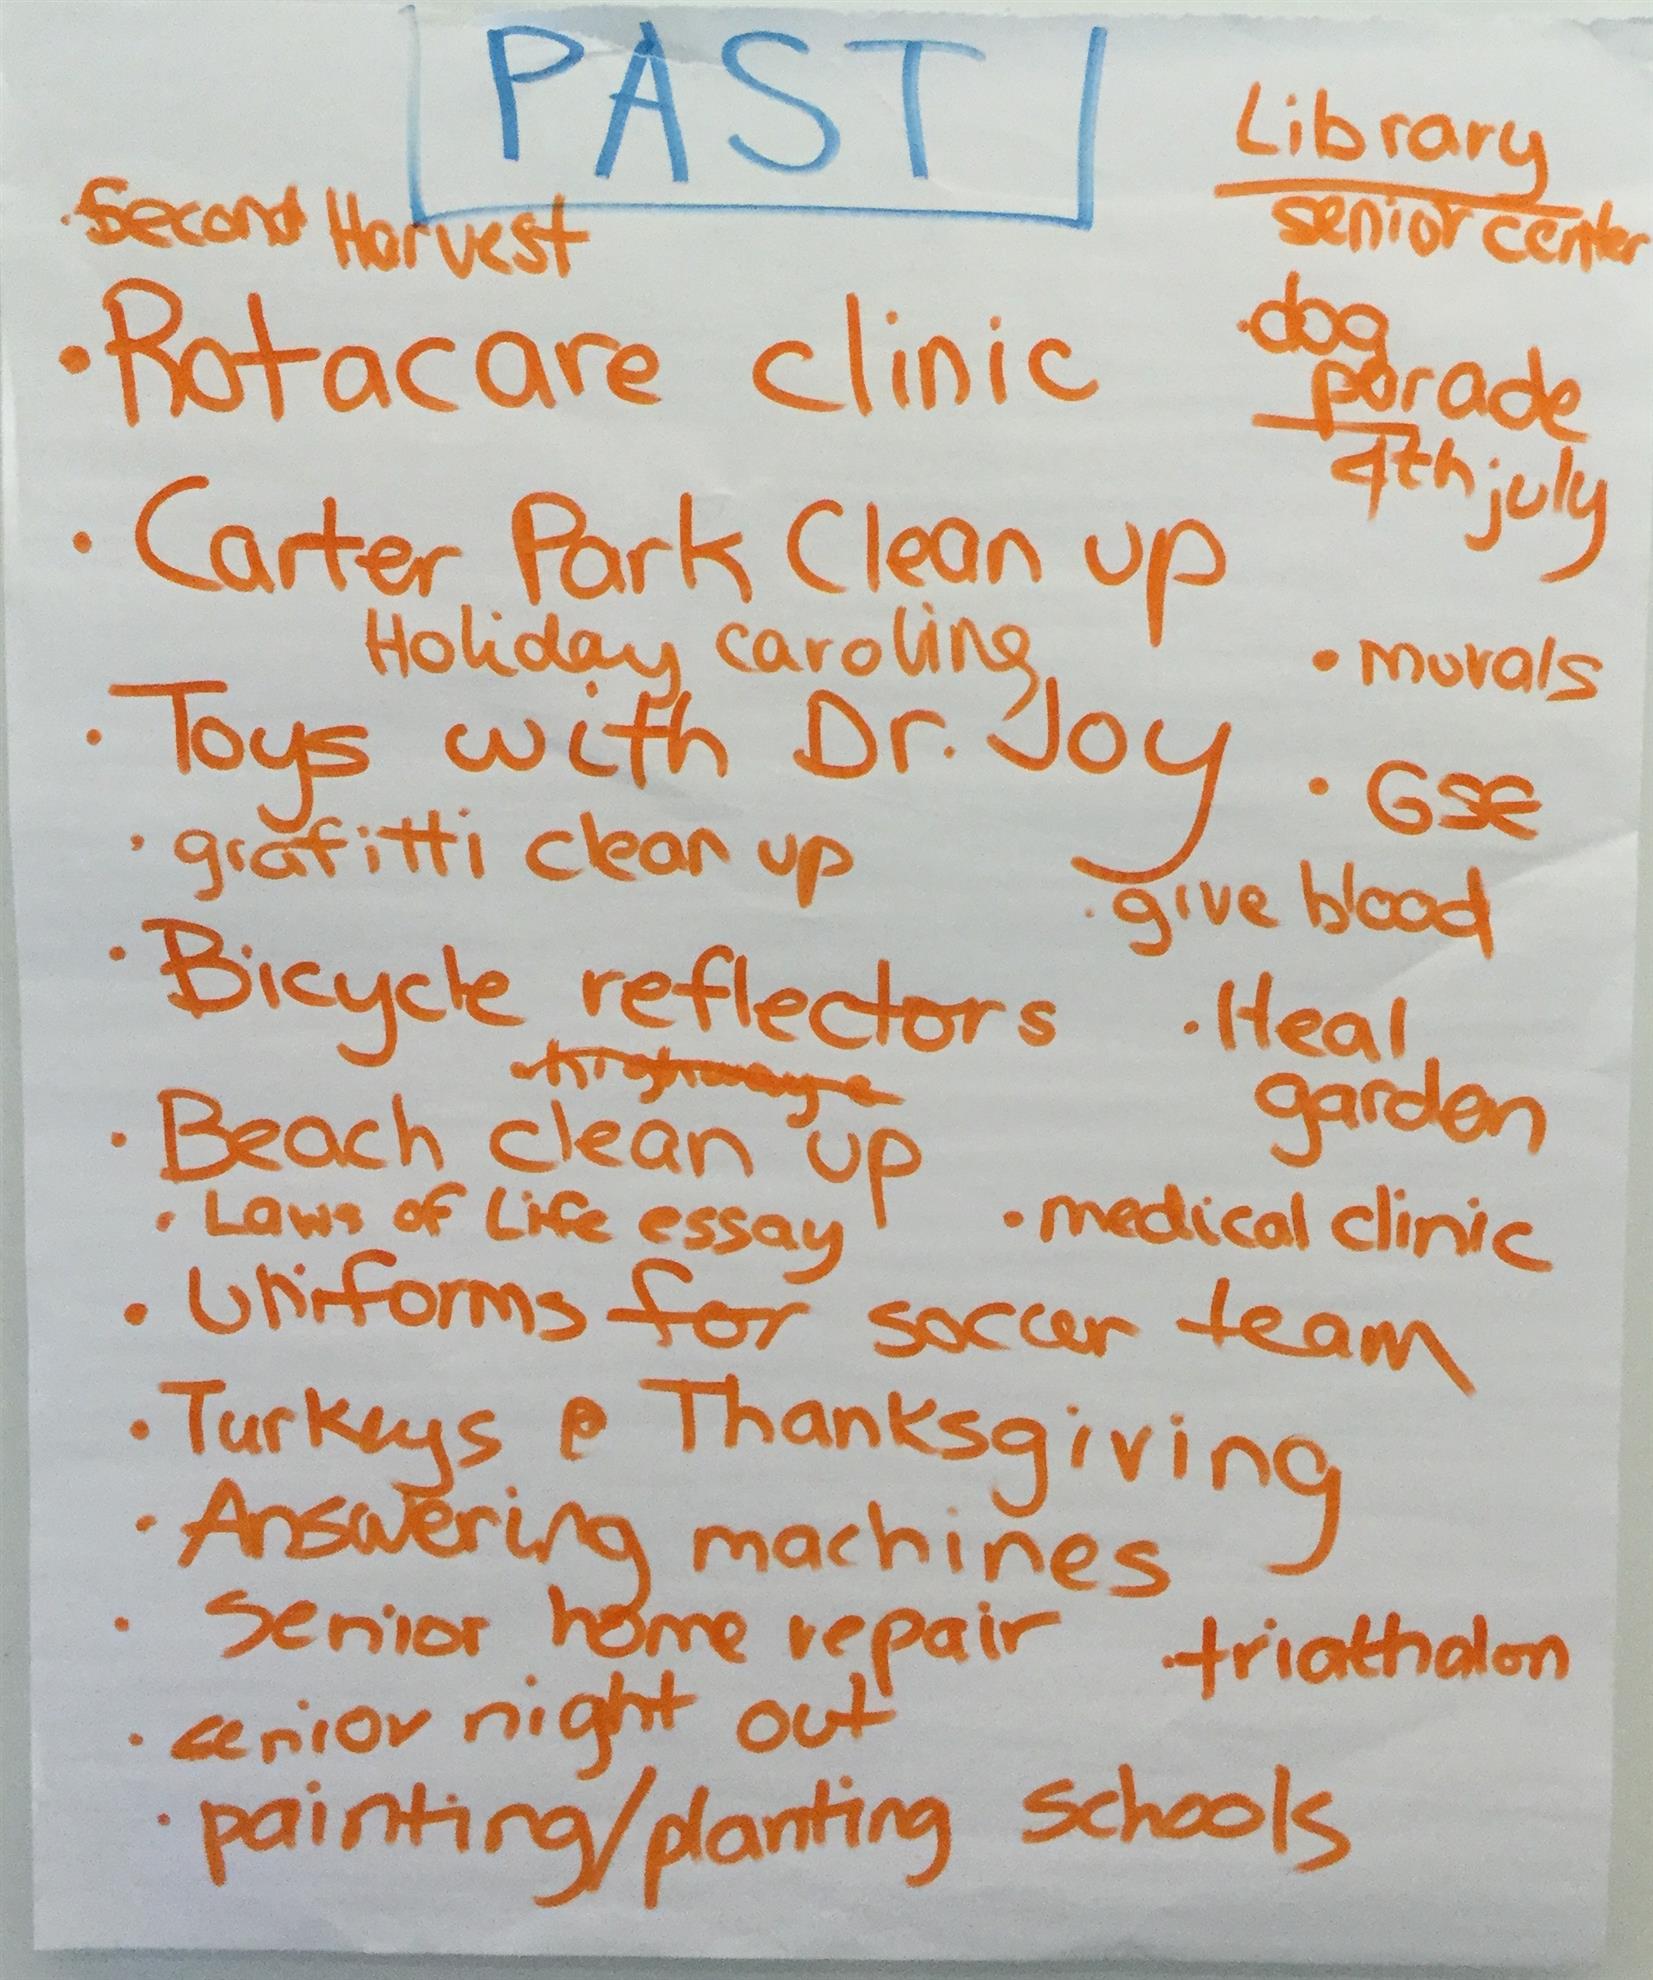 PAST
Library
senior center
· Second Harvest
· dog
parade
4th july
· Rotacare clinic
· Carter Park Clean up
Holiday caroling
· murals
· Toys with Dr. Joy
· GSE
· grafitti clean up
· give blood
· Bicycle reflectors
· Heal
garden
highway
· Beach clean up
· Laws of Life essay
· medical clinic
· Uniforms for soccer team
· Turkeys @ Thanksgiving
· Answering machines
· senior home repair
· triathalon
· senior night out
· painting/planting schools